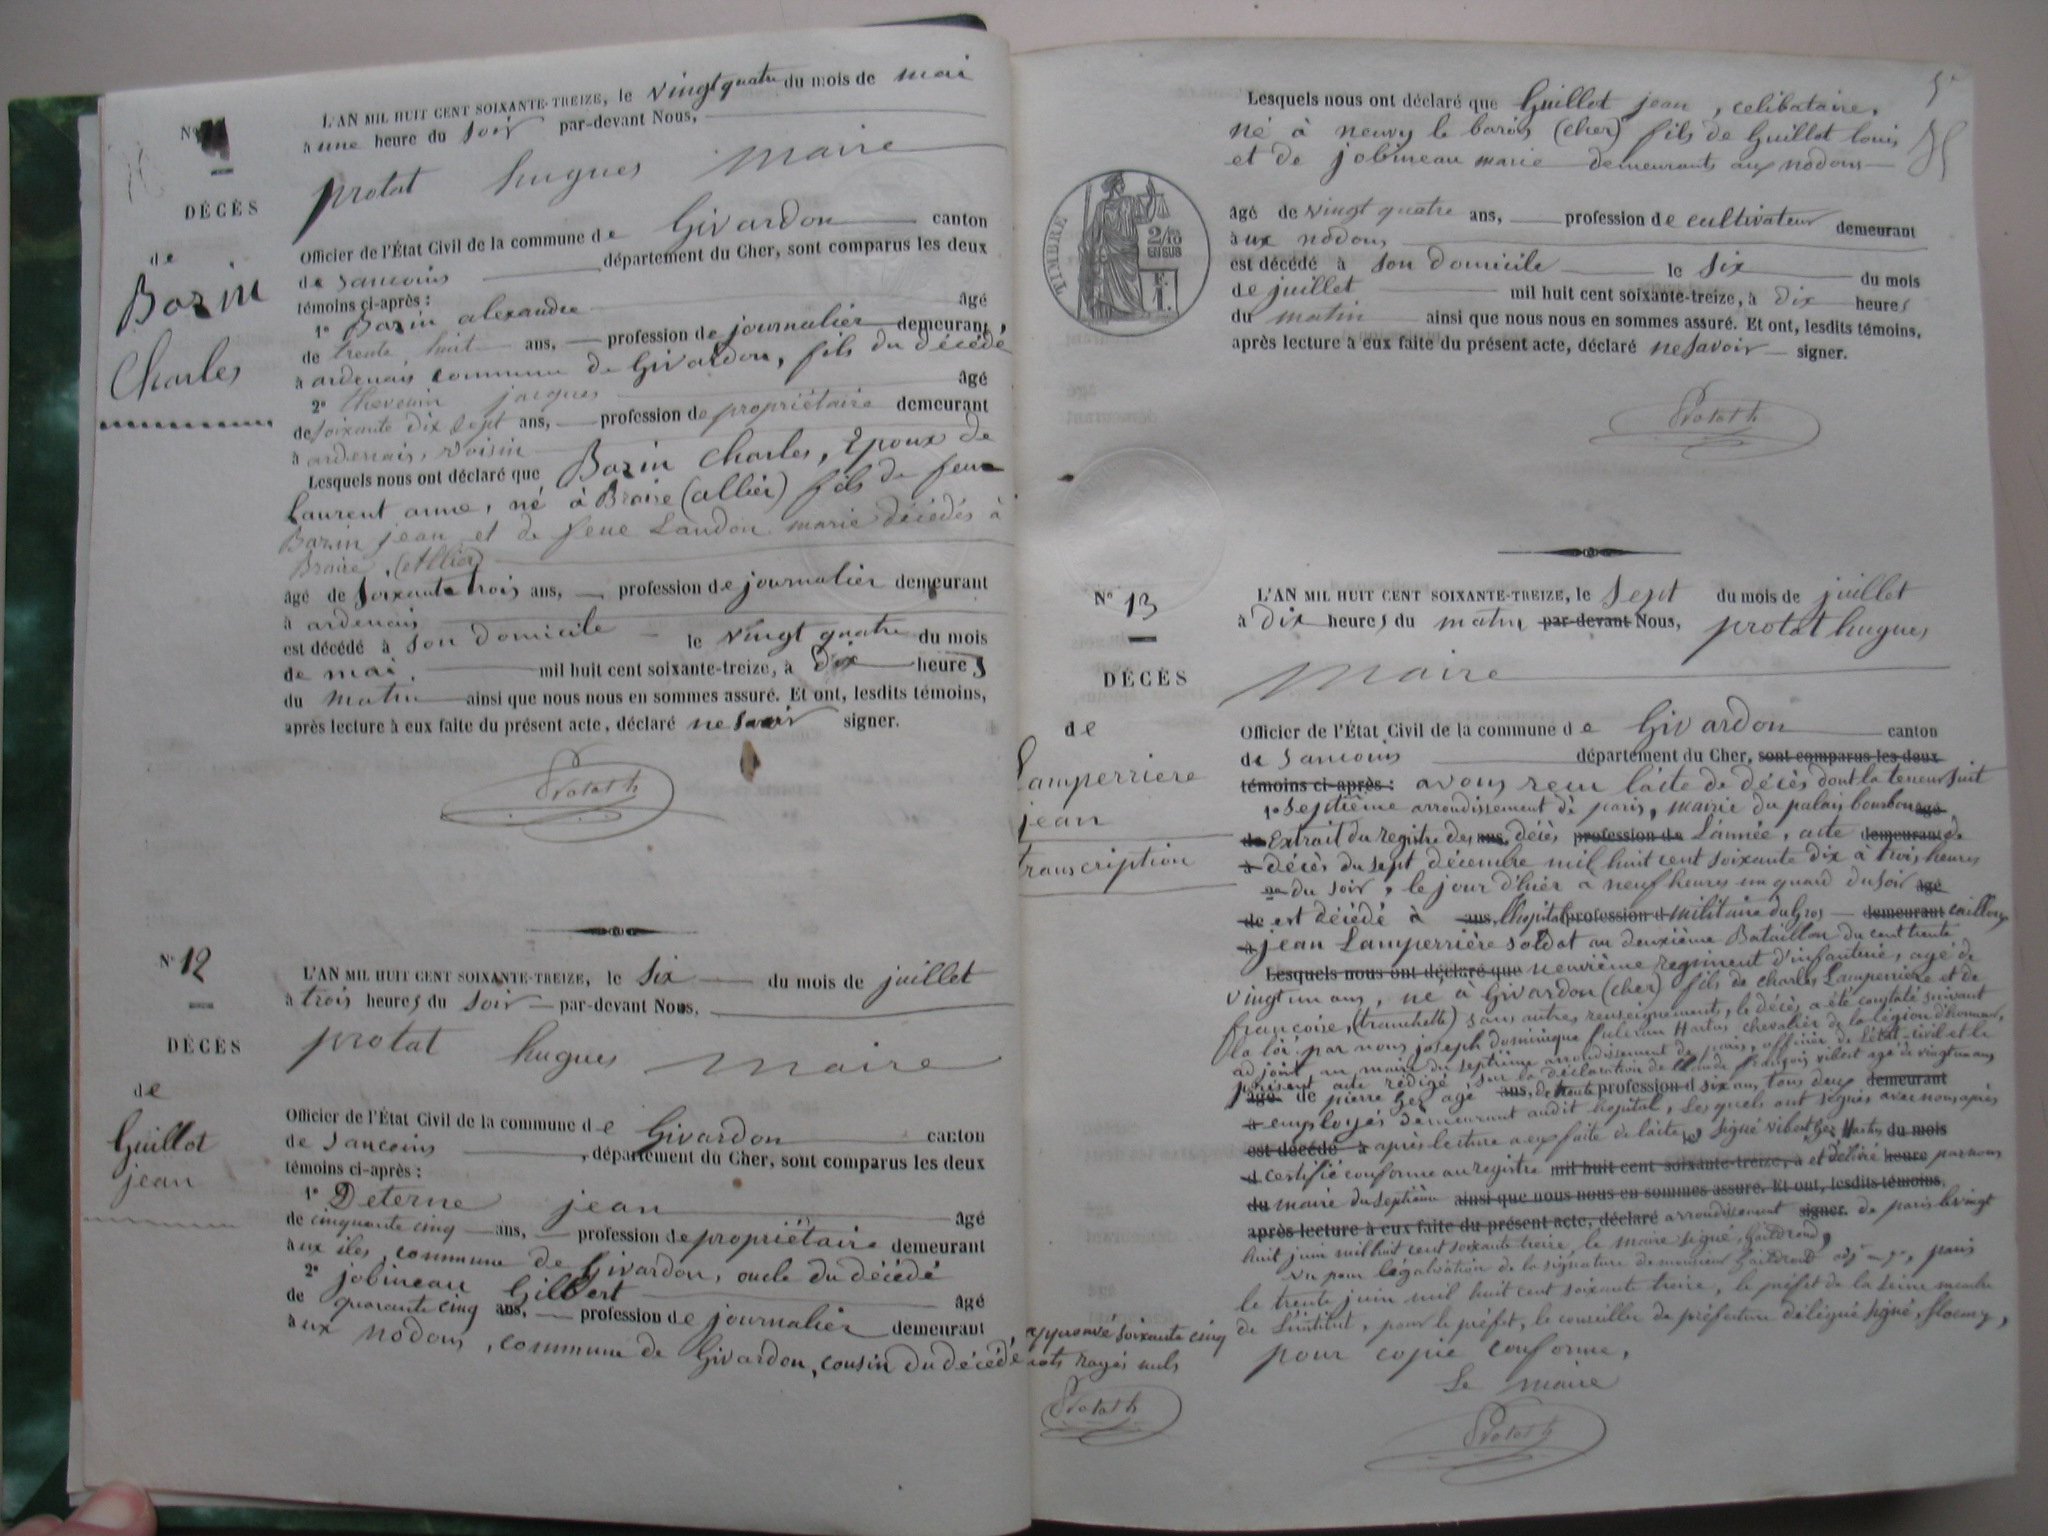 N°
DÉCÈS
de
Bazin
Charles
L'AN MIL HUIT CENT SOIXANTE-TREIZE, le vingt quatre du mois de mai
à une heure du soir par-devant Nous,
protat hugues maire
Officier de l'État Civil de la commune de Givardon canton
de Sancoins département du Cher, sont comparus les deux
témoins ci-après :
1° Bazin alexandre âgé
de trente huit ans, profession de journalier demeurant,
à ardenais commune de Givardon, fils du décédé
2° thevenin jacques âgé
de soixante dix sept ans, profession de propriétaire demeurant
à ardenais, voisin
Lesquels nous ont déclaré que Bazin Charles, Epoux de
Laurent anne, né à Braire (allier) fils de feux
Bazin jean et de feue Landon marie décédés à
Braire (Allier)
âgé de soixante trois ans, profession de journalier demeurant
à ardenais
est décédé à son domicile le vingt quatre du mois
de mai, mil huit cent soixante-treize, à dix heures
du matin ainsi que nous nous en sommes assuré. Et ont, lesdits témoins,
après lecture à eux faite du présent acte, déclaré ne savoir signer.
Protat h
N° 12
DÉCÈS
de
Guillot
jean
L'AN MIL HUIT CENT SOIXANTE-TREIZE, le six du mois de juillet
à trois heures du soir par-devant Nous,
protat hugues maire
Officier de l'État Civil de la commune de Givardon canton
de Sancoins, département du Cher, sont comparus les deux
témoins ci-après :
1° Deterne jean âgé
de cinquante cinq ans, profession de propriétaire demeurant
à ux iles, commune de Givardon, oncle du décédé
2° jobineau Gilbert âgé
de quarante cinq ans, profession de journalier demeurant
à ux nodons, commune de Givardon, cousin du décédé
Lesquels nous ont déclaré que Guillot jean, celibataire,
né à neuvy le barois (cher) fils de Guillot louis
et de jobineau marie demeurants aux nodons
TIMBRE
2/10
EN SUS
âgé de vingt quatre ans, profession de cultivateur demeurant
à ux nodons
est décédé à son domicile le six du mois
de juillet mil huit cent soixante-treize, à dix heures
du matin ainsi que nous nous en sommes assuré. Et ont, lesdits témoins,
après lecture à eux faite du présent acte, déclaré ne savoir signer.
Protat h
N° 13
DÉCÈS
de
Lamperriere
jean
transcription
L'AN MIL HUIT CENT SOIXANTE-TREIZE, le sept du mois de juillet
à dix heures du matin par-devant Nous, protat hugues
maire
Officier de l'État Civil de la commune de Givardon canton
de Sancoins département du Cher, sont comparus les deux
témoins ci-après : avons reçu l'acte de décès dont la teneur suit
1° Septième arrondissement de paris, mairie du palais bourbon âgé
de Extrait du registre des ans, décès profession de L'année, acte demeurant de
à décès du sept décembre mil huit cent soixante dix à trois heures
2° du soir, le jour d'hier à neuf heures un quard du soir âgé
de est décédé à ans, l'hopital profession d militaire du Gros demeurant caillou
à jean Lamperrière soldat au deuxième Bataillon du cent trente
Lesquels nous ont déclaré que neuvième regiment d'infanterie, agé de
vingt un ans, né à Givardon (cher) fils de charles Lamperriere et de
françoise, (tranchette) sans autres renseignements, le décès a été constaté suivant
la loi par nous joseph Dominique Hortus chevalier de la légion d'honneur,
adjoint au maire du septième arrondissement de paris, officier de l'état-civil et le
présent acte rédigé, sur la déclaration de Claude françois vibert agé de vingt un ans
âgé de pierre Gez agé ans, de trente profession d six ans, tous deux demeurant
à employés demeurant audit hopital, Lesquels ont signés avec nous après
est décédé à après lecture a eux faite de l'acte, signé vibert Gez Hortus du mois
d certifié conforme au registre mil huit cent soixante-treize, à et délivré heure par nous
du maire du septième ainsi que nous nous en sommes assuré. Et ont, lesdits témoins,
après lecture à eux faite du présent acte, déclaré arrondissement signer. de paris le vingt
huit juin mil huit cent soixante treize, le maire signé,
vu pour légalisation de la signature de monsieur paris
le trente juin mil huit cent soixante treize, le préfet de la seine membre
de L'institut, pour le préfet, le conseiller de préfecture délégué signé,
pour copie conforme,
Le maire
Protat h
approuvé soixante cinq
mots rayés nuls
Protat h